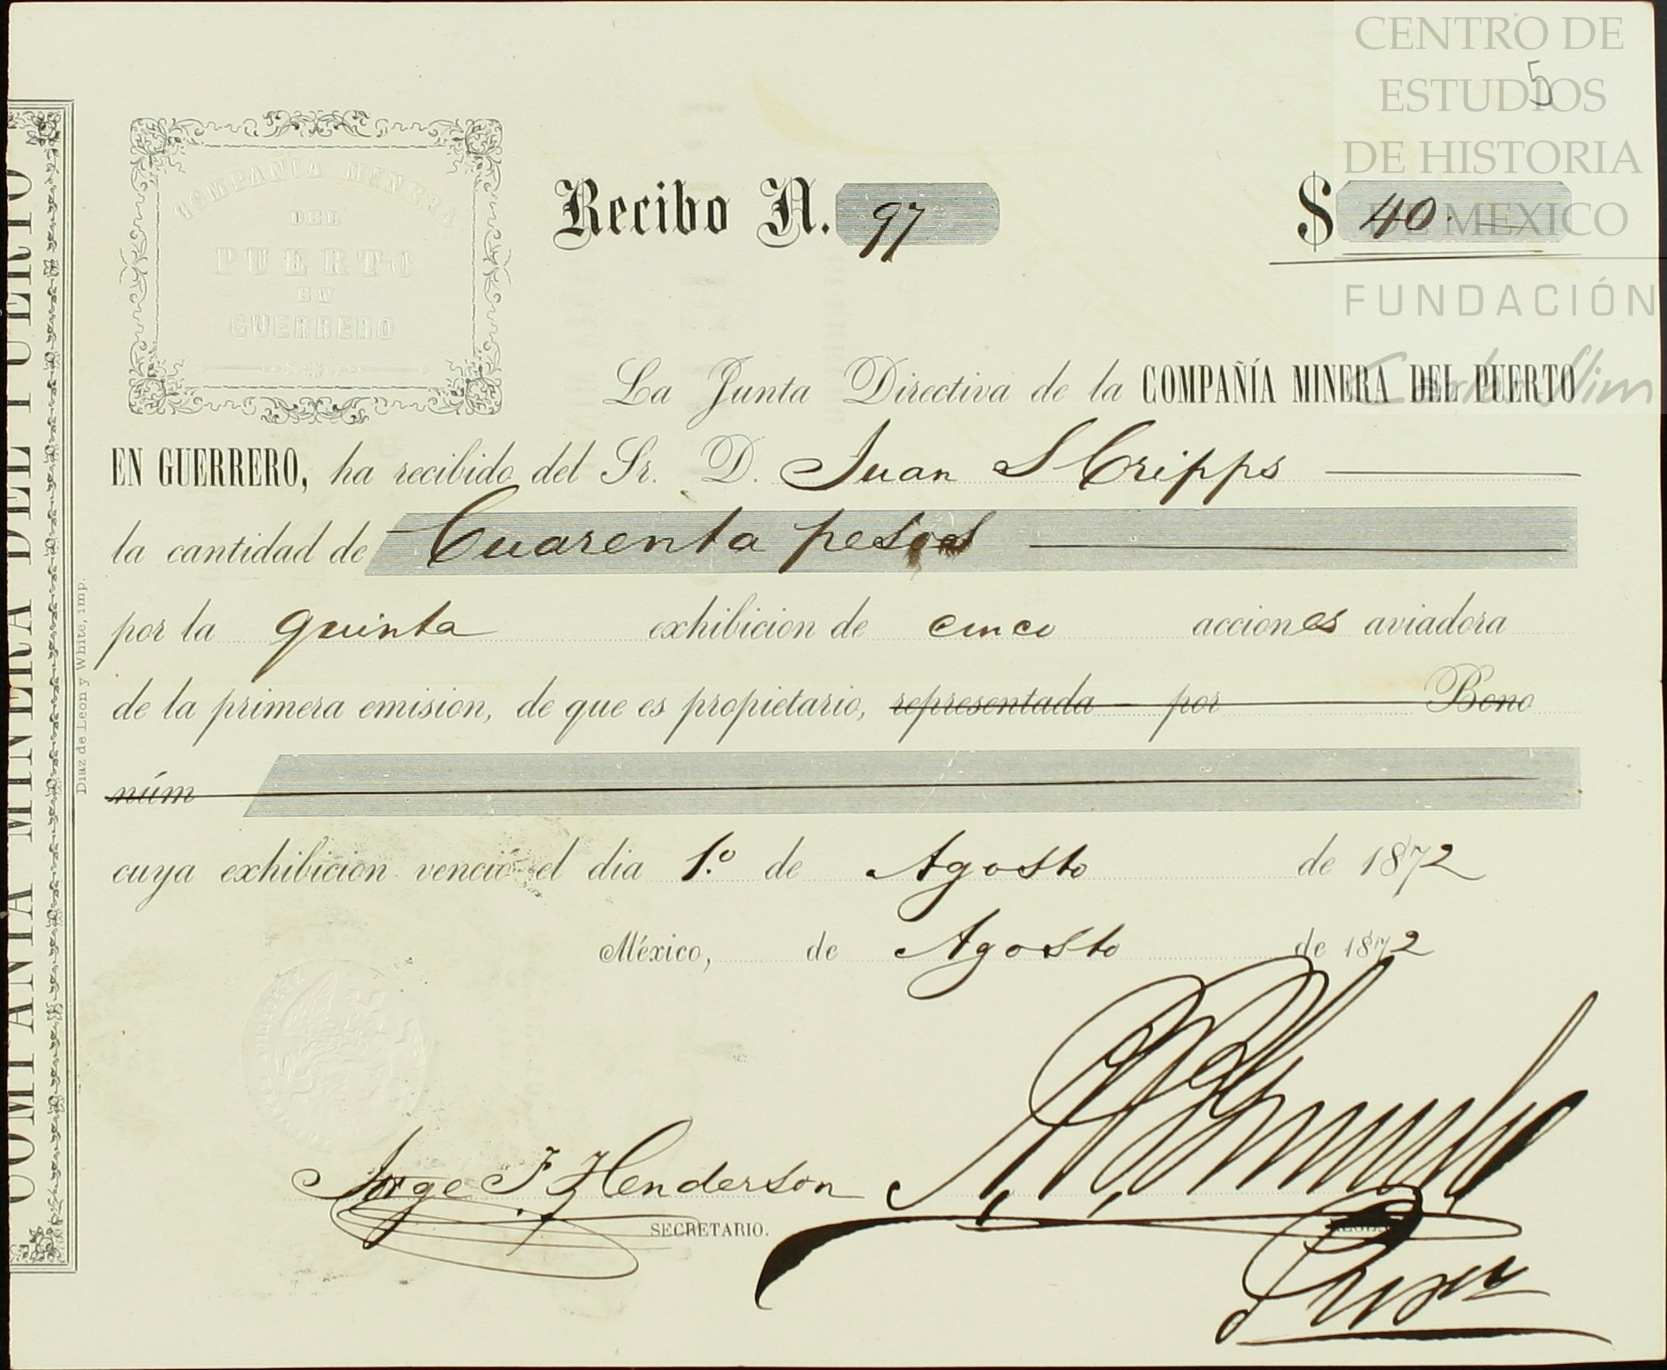 CENTRO DE
ESTUDIOS
DE HISTORIA
DE MEXICO
FUNDACIÓN
Carlos Slim
5
COMPAÑIA MINERA DEL PUERTO
Diaz de Leon y White, imp.
COMPAÑIA MINERA
DEL
PUERTO
EN
GUERRERO
Recibo N. 97 $ 40.
La Junta Directiva de la COMPAÑÍA MINERA DEL PUERTO
EN GUERRERO, ha recibido del Sr. D. Juan S Cripps
la cantidad de Cuarenta pesos
por la quinta exhibicion de cinco acciones aviadora
de la primera emision, de que es propietario, representada por Bono
núm
cuya exhibicion venció el dia 1.º de Agosto de 1872
México, de Agosto de 1872
Jorge F. Henderson
SECRETARIO.